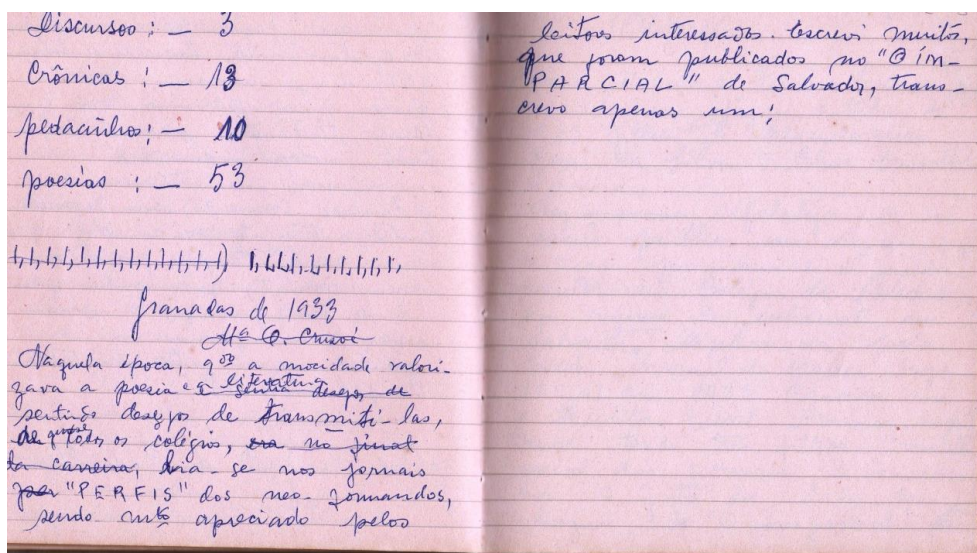 Discursos : — 3
Crônicas : — 13
pedacinhos : — 10
poesias : — 53
de 1933
Mª O.
Naquela época, qdo a mocidade valori-
zava a poesia e a literatura
sentindo desejos de transmiti-las,
de quase todos os colégios, era no final
da carreira, lia-se nos jornais
"PERFIS" dos neo-formandos,
sendo mto apreciado pelos
leitores interessados. Escrevi muitos,
que foram publicados no "O IM-
PARCIAL" de Salvador, trans-
crevo apenas um: